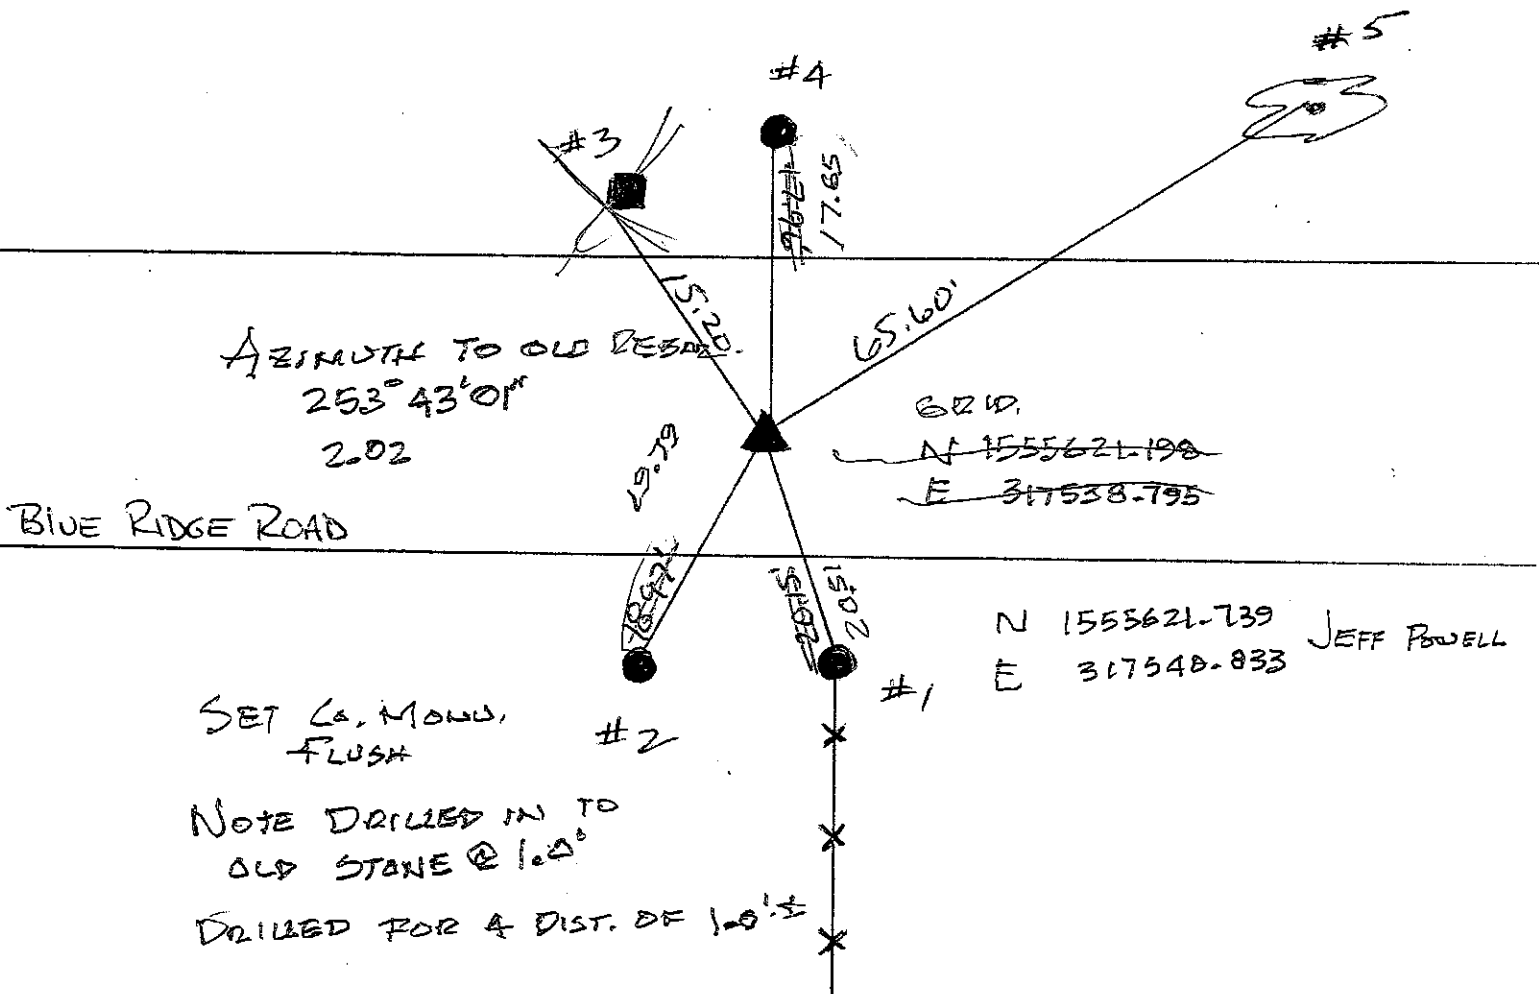 #5
#4
#3
17.96'
17.65
15.20
65.60'
AZIMUTH TO OLD REBAR.
253° 43' 01"
2.02
GRID.
N 1555621.198
E 317538.795
19.79
BLUE RIDGE ROAD
20.51
N 1555621.739
E 317540.833
JEFF POWELL
#1
#2
SET CO. MONU.
FLUSH
NOTE DRILLED IN TO
OLD STONE @ 1.0'
DRILLED FOR A DIST. OF 1.0'±